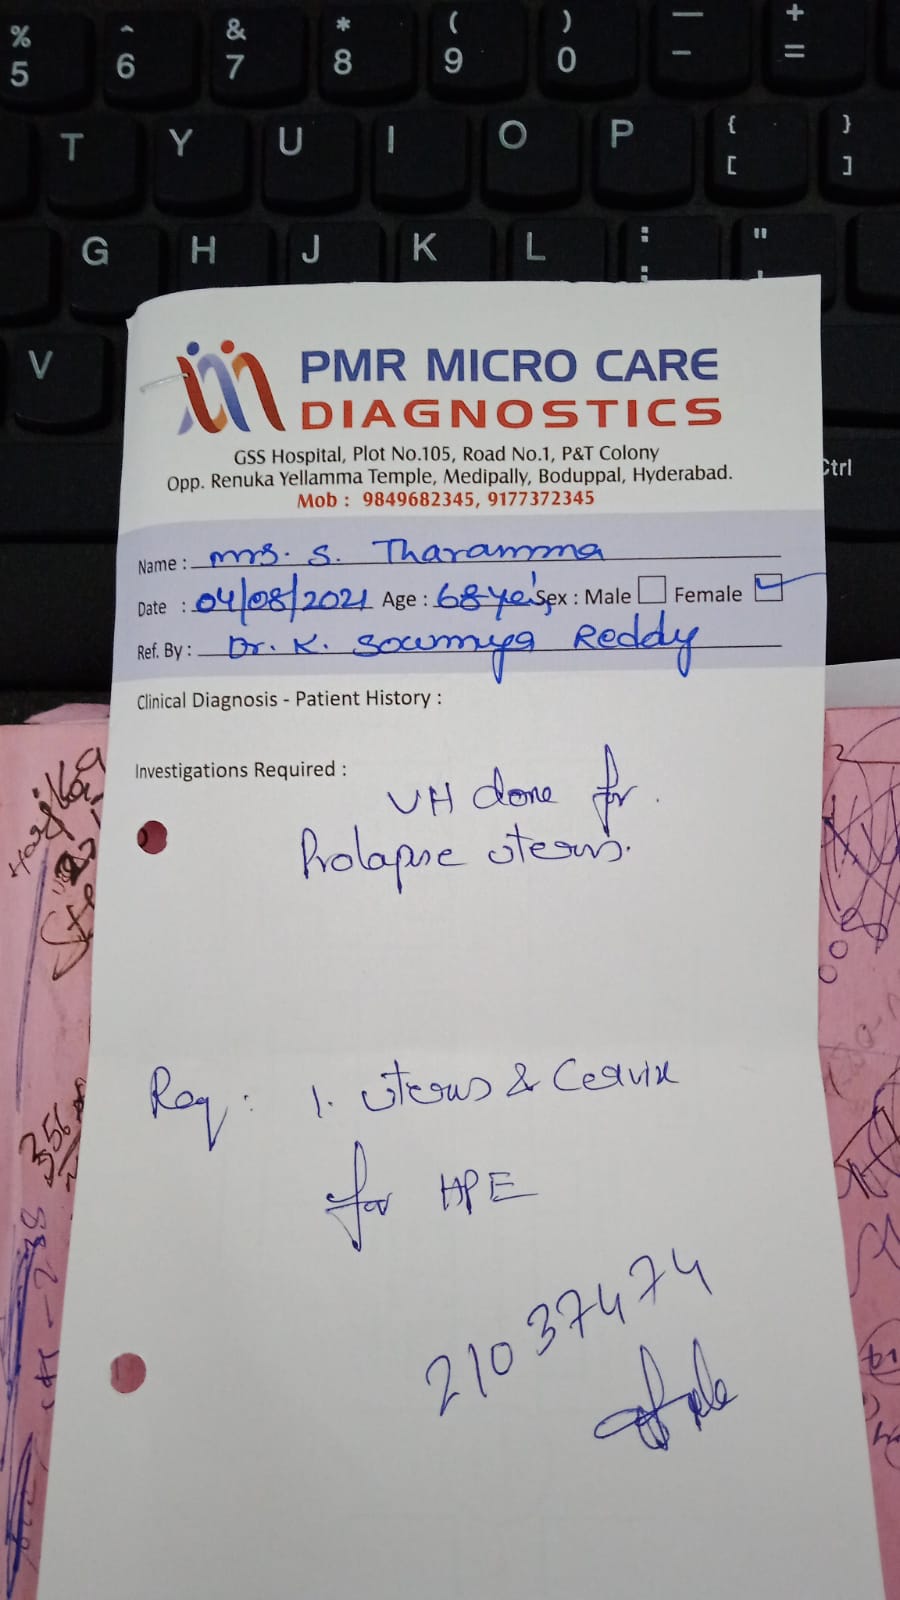 % ^ & * ( ) — +
5 6 7 8 9 0 – =
T Y U I O P { }
[ ]
G H J K L : "
; '
V
Ctrl
PMR MICRO CARE
DIAGNOSTICS
GSS Hospital, Plot No.105, Road No.1, P&T Colony
Opp. Renuka Yellamma Temple, Medipally, Boduppal, Hyderabad.
Mob : 9849682345, 9177372345
Name : Mrs. S. Tharamma
Date : 04/08/2021 Age : 68 yrs Sex : Male Female
Ref. By : Dr. K. Soumya Reddy
Clinical Diagnosis - Patient History :
Investigations Required :
VH done for
Prolapse uterus.
Req : 1. uterus & Cervix
for HPE
21037474
356